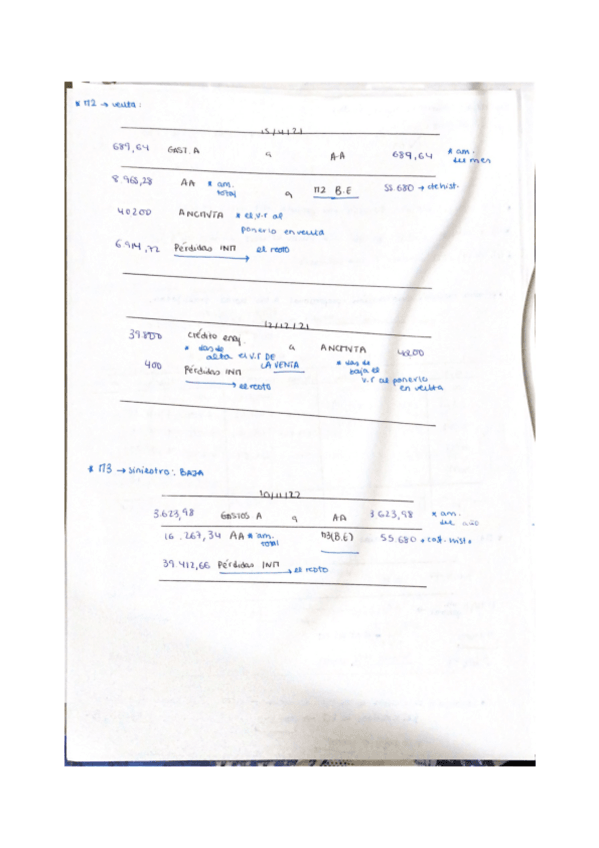 * M2 → venta:
15/4/21
689,64 GAST. A a A·A 689,64 * am. del mes
8.965,28 AA * am. total a M2 B.E 55.680 → cte hist.
40200 ANCMVTA * el v.r al ponerlo en venta
6.514,72 Pérdidas INM → el resto
12/12/21
39.800 crédito enaj. a ANCMVTA 40200
* das de alta el v.r DE LA VENTA
* das de baja el v.r al ponerlo en venta
400 Pérdidas INM → el resto
* M3 → siniestro: BAJA
10/11/22
3.623,98 GASTOS A a AA 3.623,98 * am. del año
16.267,34 AA * am. total M3 (B.E) 55.680 * cost. hist.
39.412,66 Pérdidas INM → el resto